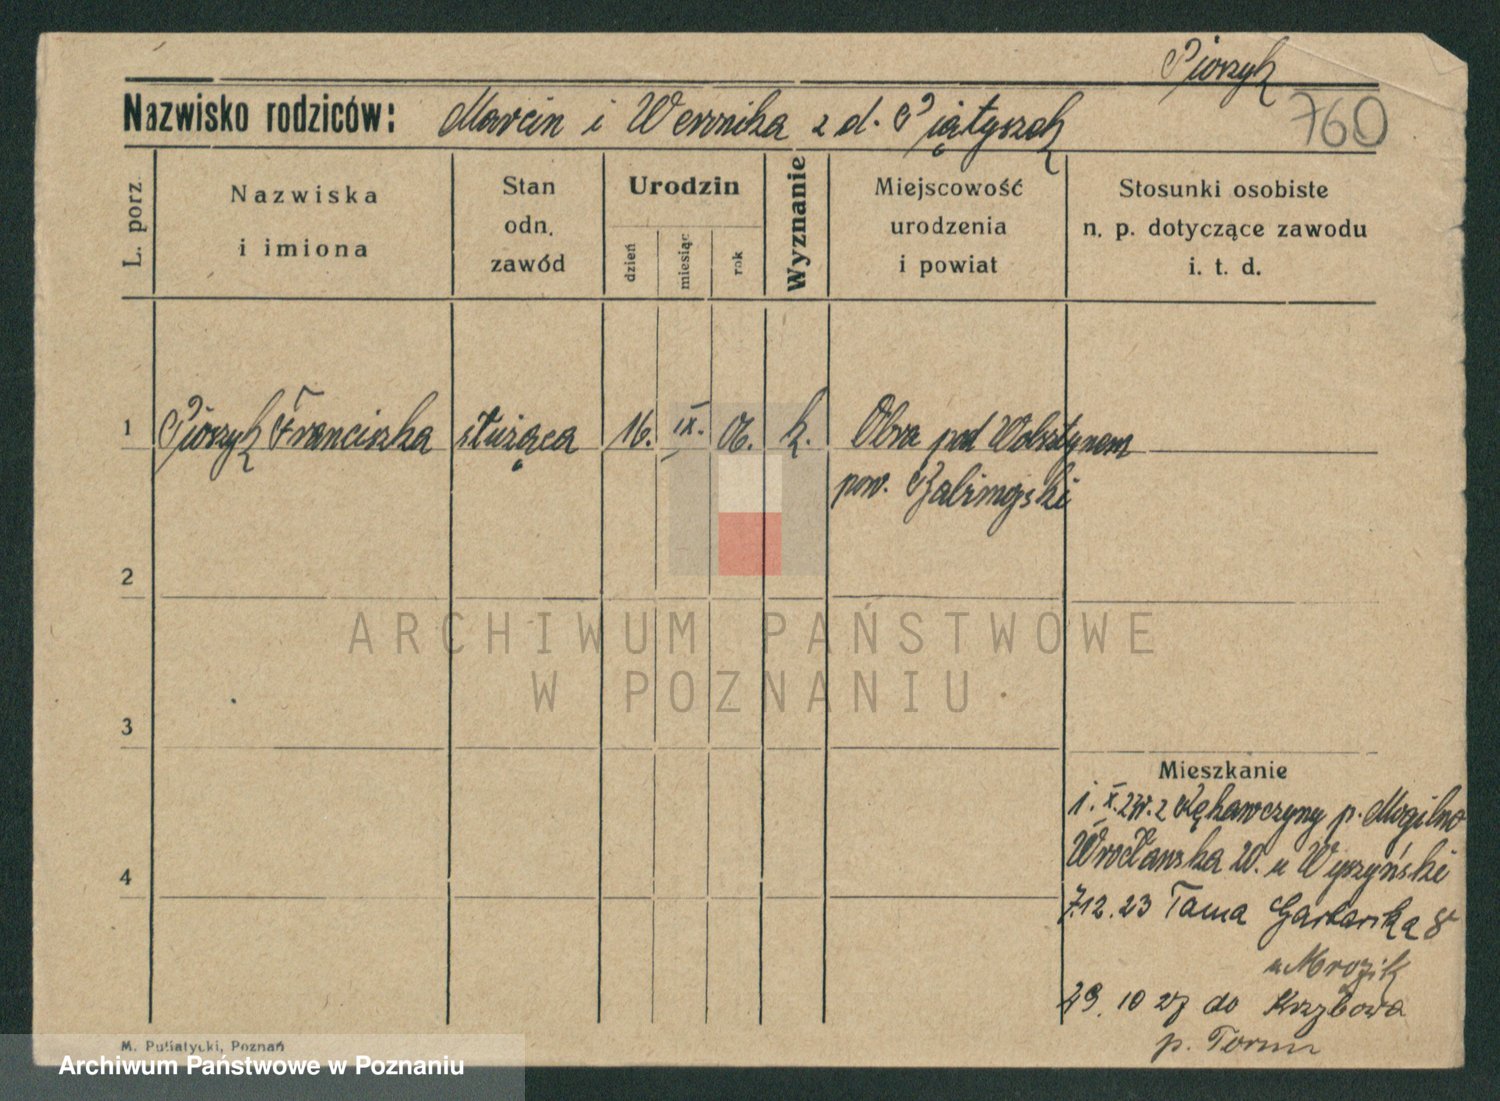 Piorzyk
760
Nazwisko rodziców: Marcin i Weronika z d. Piątyszek
L. porz.
Nazwiska
i imiona
Stan
odn.
zawód
Urodzin
dzień
miesiąc
rok
Wyznanie
Miejscowość
urodzenia
i powiat
Stosunki osobiste
n. p. dotyczące zawodu
i. t. d.
1 Piorzyk Franciszka służąca 16. IX. 06. k. Obra pod Wolsztynem
pow. Babimojski
2
ARCHIWUM PAŃSTWOWE
W POZNANIU
3
Mieszkanie
p. Mogilno
4
Wrocławska 20. u Wyszyński
7.12.23 Tama Garbarska 8
u Mrozik
29. 10 27 do
p. Toruń
M. Putiatycki, Poznań
Archiwum Państwowe w Poznaniu